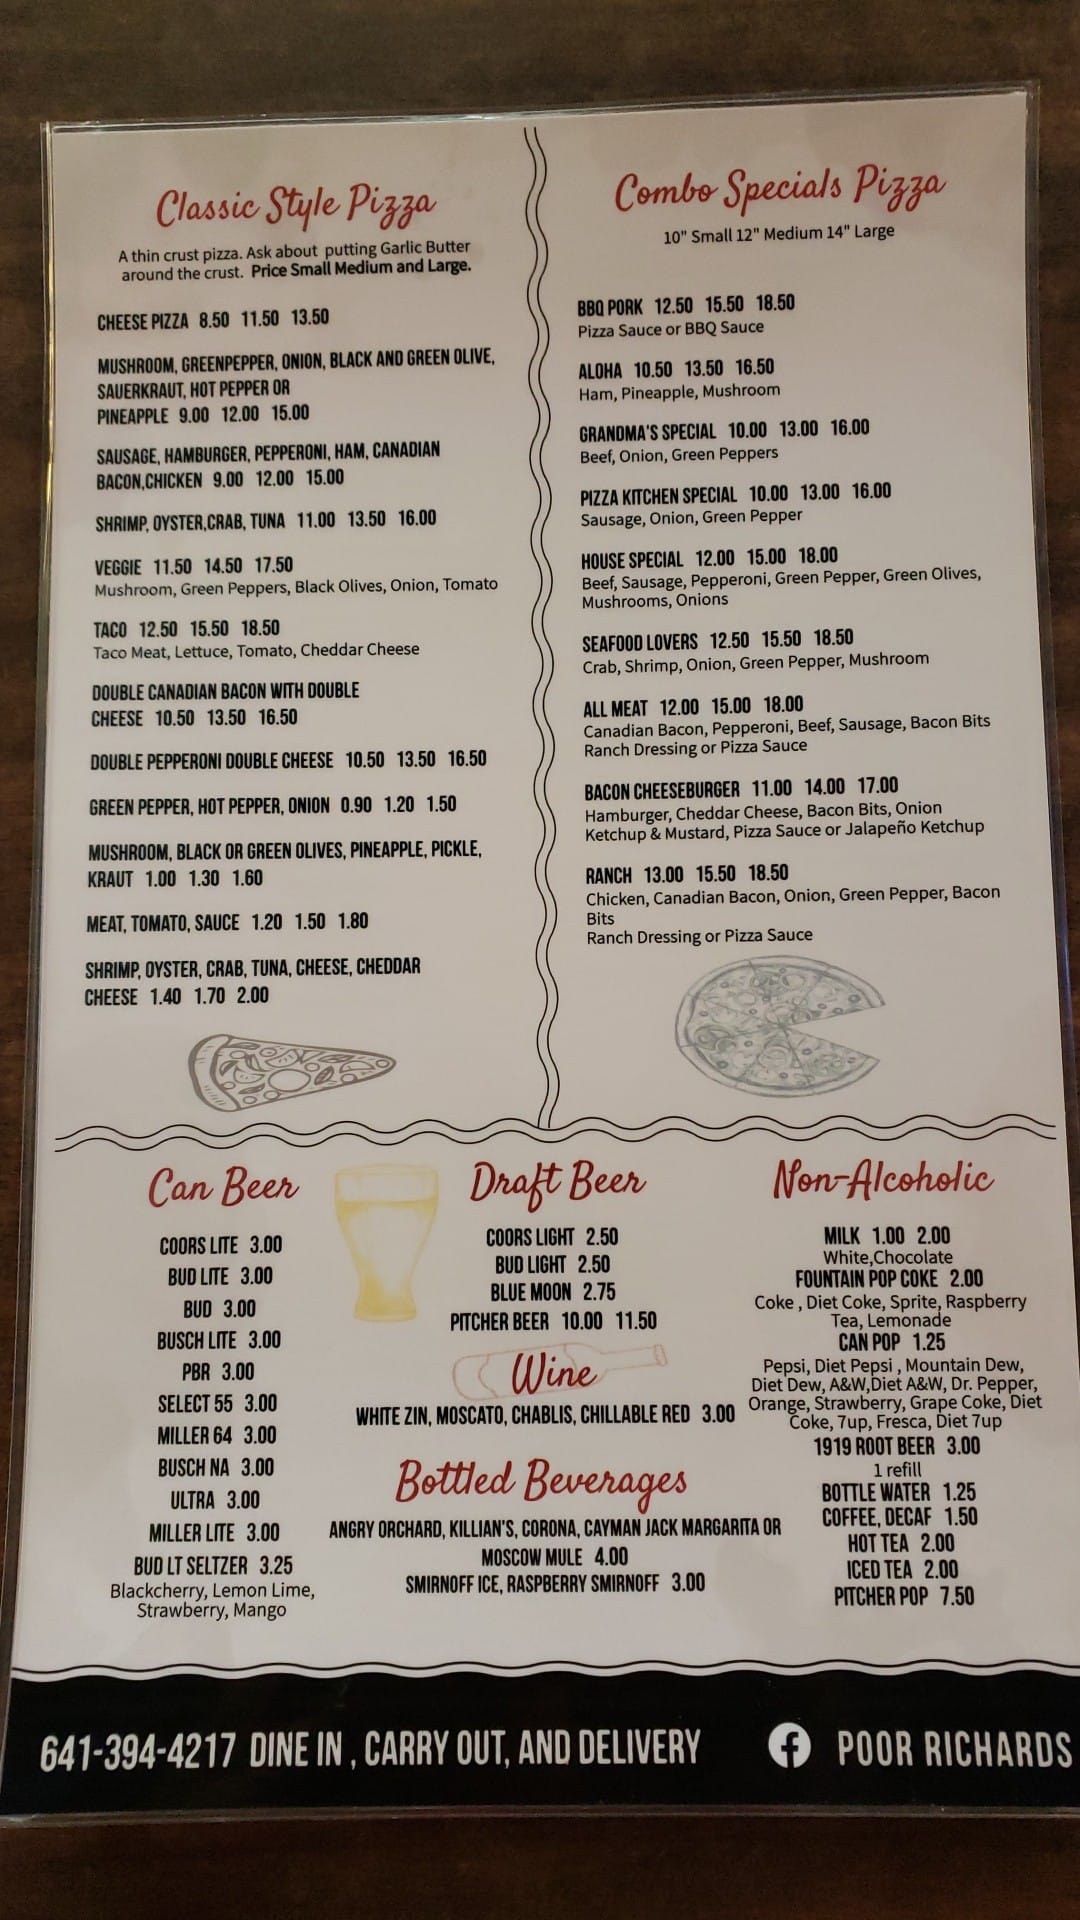 Classic Style Pizza
A thin crust pizza. Ask about putting Garlic Butter
around the crust. Price Small Medium and Large.
CHEESE PIZZA 8.50 11.50 13.50
MUSHROOM, GREENPEPPER, ONION, BLACK AND GREEN OLIVE,
SAUERKRAUT, HOT PEPPER OR
PINEAPPLE 9.00 12.00 15.00
SAUSAGE, HAMBURGER, PEPPERONI, HAM, CANADIAN
BACON,CHICKEN 9.00 12.00 15.00
SHRIMP, OYSTER,CRAB, TUNA 11.00 13.50 16.00
VEGGIE 11.50 14.50 17.50
Mushroom, Green Peppers, Black Olives, Onion, Tomato
TACO 12.50 15.50 18.50
Taco Meat, Lettuce, Tomato, Cheddar Cheese
DOUBLE CANADIAN BACON WITH DOUBLE
CHEESE 10.50 13.50 16.50
DOUBLE PEPPERONI DOUBLE CHEESE 10.50 13.50 16.50
GREEN PEPPER, HOT PEPPER, ONION 0.90 1.20 1.50
MUSHROOM, BLACK OR GREEN OLIVES, PINEAPPLE, PICKLE,
KRAUT 1.00 1.30 1.60
MEAT, TOMATO, SAUCE 1.20 1.50 1.80
SHRIMP, OYSTER, CRAB, TUNA, CHEESE, CHEDDAR
CHEESE 1.40 1.70 2.00
Combo Specials Pizza
10" Small 12" Medium 14" Large
BBQ PORK 12.50 15.50 18.50
Pizza Sauce or BBQ Sauce
ALOHA 10.50 13.50 16.50
Ham, Pineapple, Mushroom
GRANDMA'S SPECIAL 10.00 13.00 16.00
Beef, Onion, Green Peppers
PIZZA KITCHEN SPECIAL 10.00 13.00 16.00
Sausage, Onion, Green Pepper
HOUSE SPECIAL 12.00 15.00 18.00
Beef, Sausage, Pepperoni, Green Pepper, Green Olives,
Mushrooms, Onions
SEAFOOD LOVERS 12.50 15.50 18.50
Crab, Shrimp, Onion, Green Pepper, Mushroom
ALL MEAT 12.00 15.00 18.00
Canadian Bacon, Pepperoni, Beef, Sausage, Bacon Bits
Ranch Dressing or Pizza Sauce
BACON CHEESEBURGER 11.00 14.00 17.00
Hamburger, Cheddar Cheese, Bacon Bits, Onion
Ketchup & Mustard, Pizza Sauce or Jalapeño Ketchup
RANCH 13.00 15.50 18.50
Chicken, Canadian Bacon, Onion, Green Pepper, Bacon
Bits
Ranch Dressing or Pizza Sauce
Can Beer
COORS LITE 3.00
BUD LITE 3.00
BUD 3.00
BUSCH LITE 3.00
PBR 3.00
SELECT 55 3.00
MILLER 64 3.00
BUSCH NA 3.00
ULTRA 3.00
MILLER LITE 3.00
BUD LT SELTZER 3.25
Blackcherry, Lemon Lime,
Strawberry, Mango
Draft Beer
COORS LIGHT 2.50
BUD LIGHT 2.50
BLUE MOON 2.75
PITCHER BEER 10.00 11.50
Wine
WHITE ZIN, MOSCATO, CHABLIS, CHILLABLE RED 3.00
Bottled Beverages
ANGRY ORCHARD, KILLIAN'S, CORONA, CAYMAN JACK MARGARITA OR
MOSCOW MULE 4.00
SMIRNOFF ICE, RASPBERRY SMIRNOFF 3.00
Non-Alcoholic
MILK 1.00 2.00
White,Chocolate
FOUNTAIN POP COKE 2.00
Coke , Diet Coke, Sprite, Raspberry
Tea, Lemonade
CAN POP 1.25
Pepsi, Diet Pepsi , Mountain Dew,
Diet Dew, A&W,Diet A&W, Dr. Pepper,
Orange, Strawberry, Grape Coke, Diet
Coke, 7up, Fresca, Diet 7up
1919 ROOT BEER 3.00
1 refill
BOTTLE WATER 1.25
COFFEE, DECAF 1.50
HOT TEA 2.00
ICED TEA 2.00
PITCHER POP 7.50
641-394-4217 DINE IN , CARRY OUT, AND DELIVERY
POOR RICHARDS